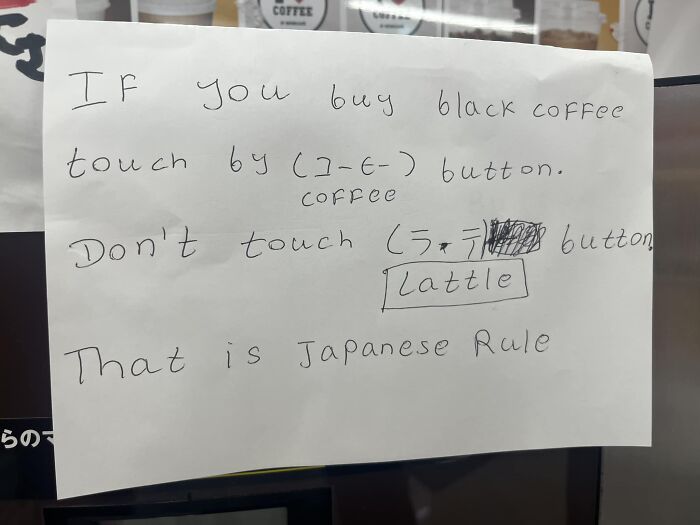 COFFEE
COFFEE
If you buy black coffee
touch by (コーヒー) button.
coffee
Don't touch (ラッテ) button
Lattle
That is Japanese Rule
らのマ